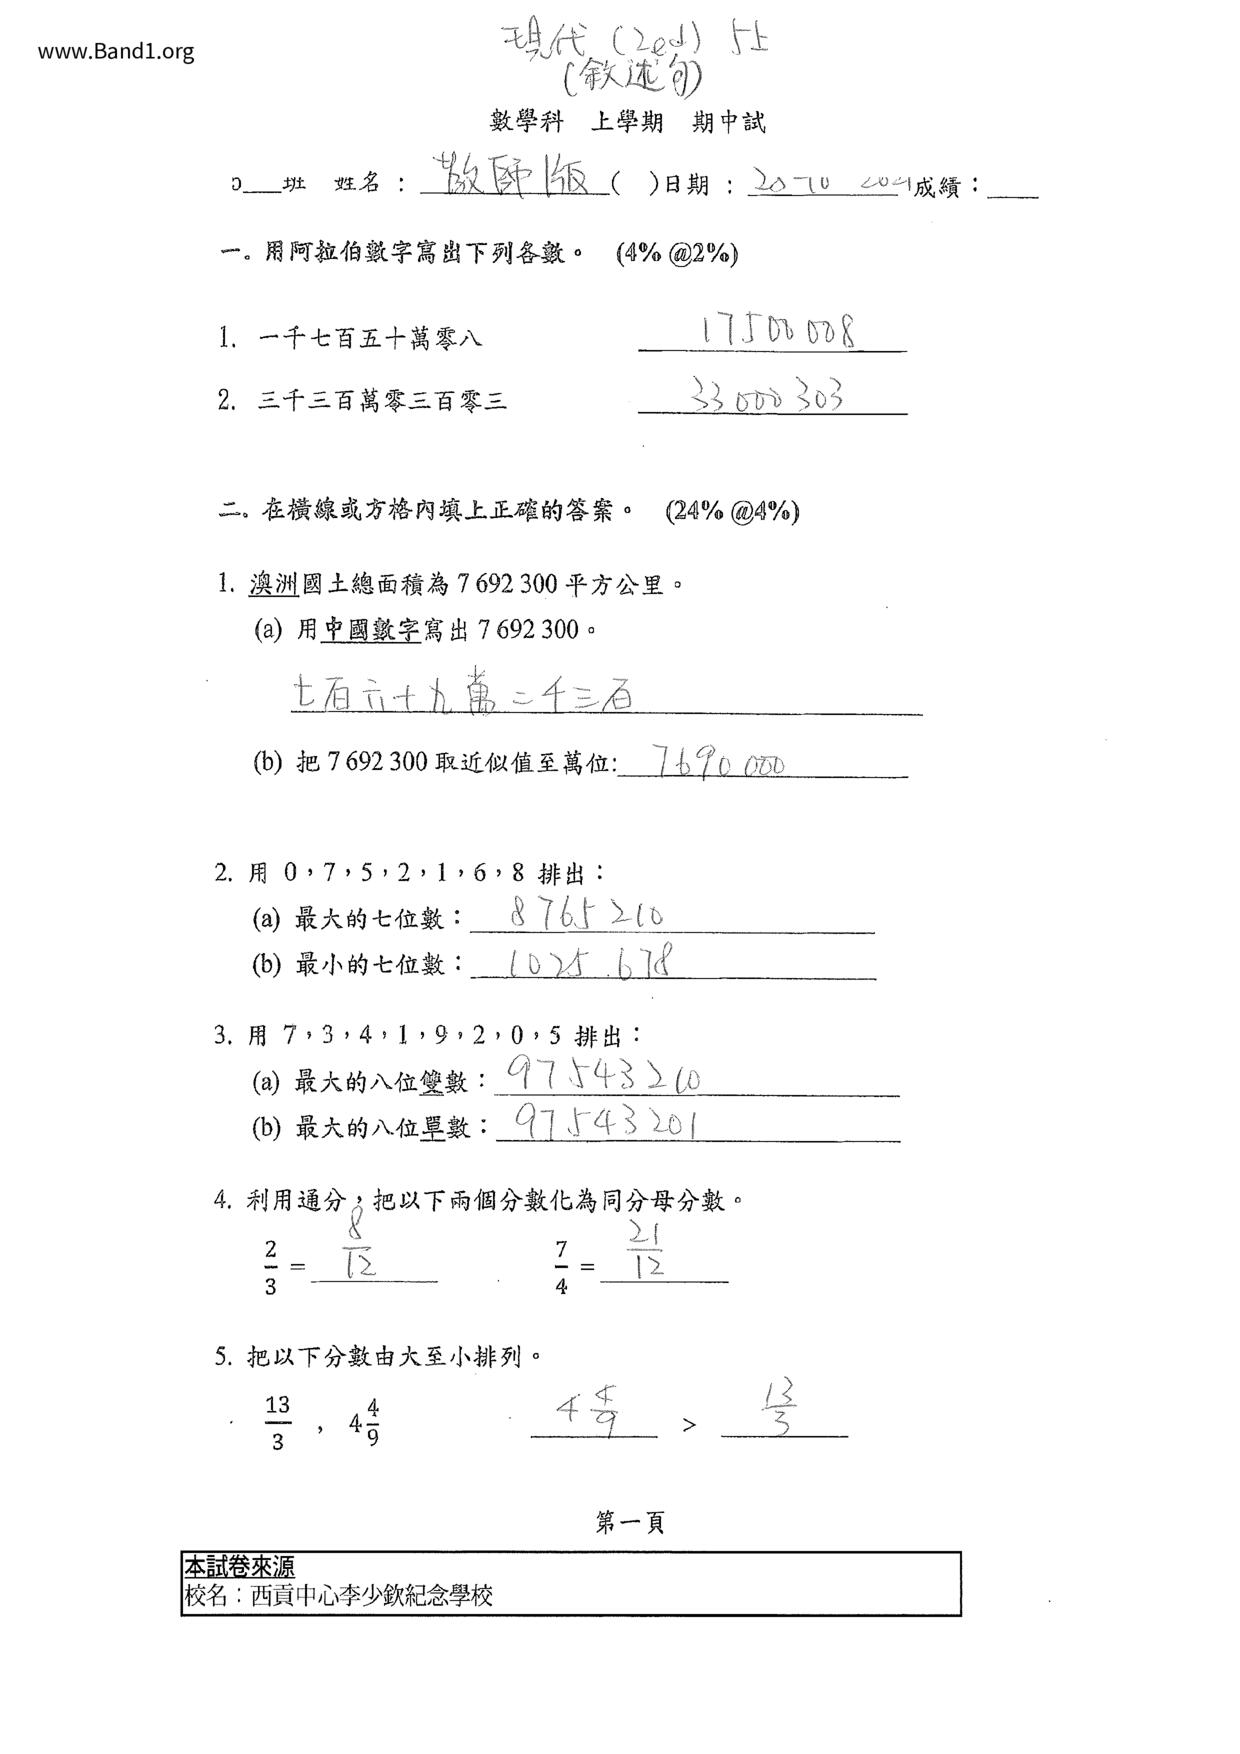 www.Band1.org
現代 (2ed) 5上
(敘述句)
數學科 上學期 期中試
班 姓名：教師版( )日期：20-10 2021成績：____
一。用阿拉伯數字寫出下列各數。 (4% @2%)
1. 一千七百五十萬零八 17500008
2. 三千三百萬零三百零三 33000303
二。在橫線或方格內填上正確的答案。 (24% @4%)
1. 澳洲國土總面積為 7 692 300 平方公里。
(a) 用中國數字寫出 7 692 300。
七百六十九萬二千三百
(b) 把 7 692 300 取近似值至萬位: 7690000
2. 用 0，7，5，2，1，6，8 排出：
(a) 最大的七位數：8765210
(b) 最小的七位數：1025678
3. 用 7，3，4，1，9，2，0，5 排出：
(a) 最大的八位雙數：97543210
(b) 最大的八位單數：97543201
4. 利用通分，把以下兩個分數化為同分母分數。
2/3 = 8/12 7/4 = 21/12
5. 把以下分數由大至小排列。
13/3 ， 4 4/9 4 4/9 > 13/3
第一頁
本試卷來源
校名：西貢中心李少欽紀念學校